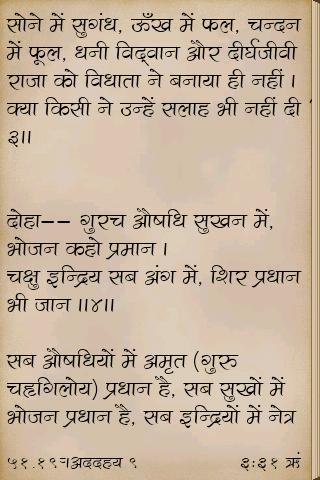 सोने में सुगंध, ऊँख में फल, चन्दन
में फूल, धनी विद्वान और दीर्घजीवी
राजा को विधाता ने बनाया ही नहीं ।
क्या किसी ने उन्हें सलाह भी नहीं दी
३॥
दोहा-- गुरच औषधि सुखन में,
भोजन कहो प्रमान ।
चक्षु इन्द्रिय सब अंग में, शिर प्रधान
भी जान ॥४॥
सब औषधियों में अमृत (गुरु
चहृगिलोय) प्रधान है, सब सुखों में
भोजन प्रधान है, सब इन्द्रियों में नेत्र
३:३१